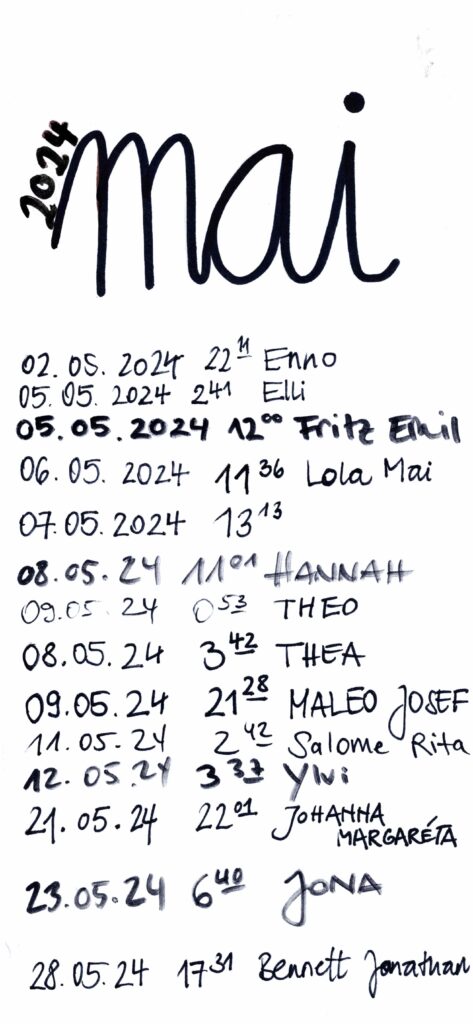 2024
mai
02.05.2024 22 11 Enno
05.05.2024 2 41 Elli
05.05.2024 12 00 Fritz Emil
06.05.2024 11 36 Lola Mai
07.05.2024 13 13
08.05.24 11 01 HANNAH
09.05.24 0 53 THEO
08.05.24 3 42 THEA
09.05.24 21 28 MALEO JOSEF
11.05.24 2 42 Salome Rita
12.05.24 3 37 Ylvi
21.05.24 22 01 JOHANNA
MARGARÉTA
23.05.24 6 40 JONA
28.05.24 17 31 Bennett Jonathan